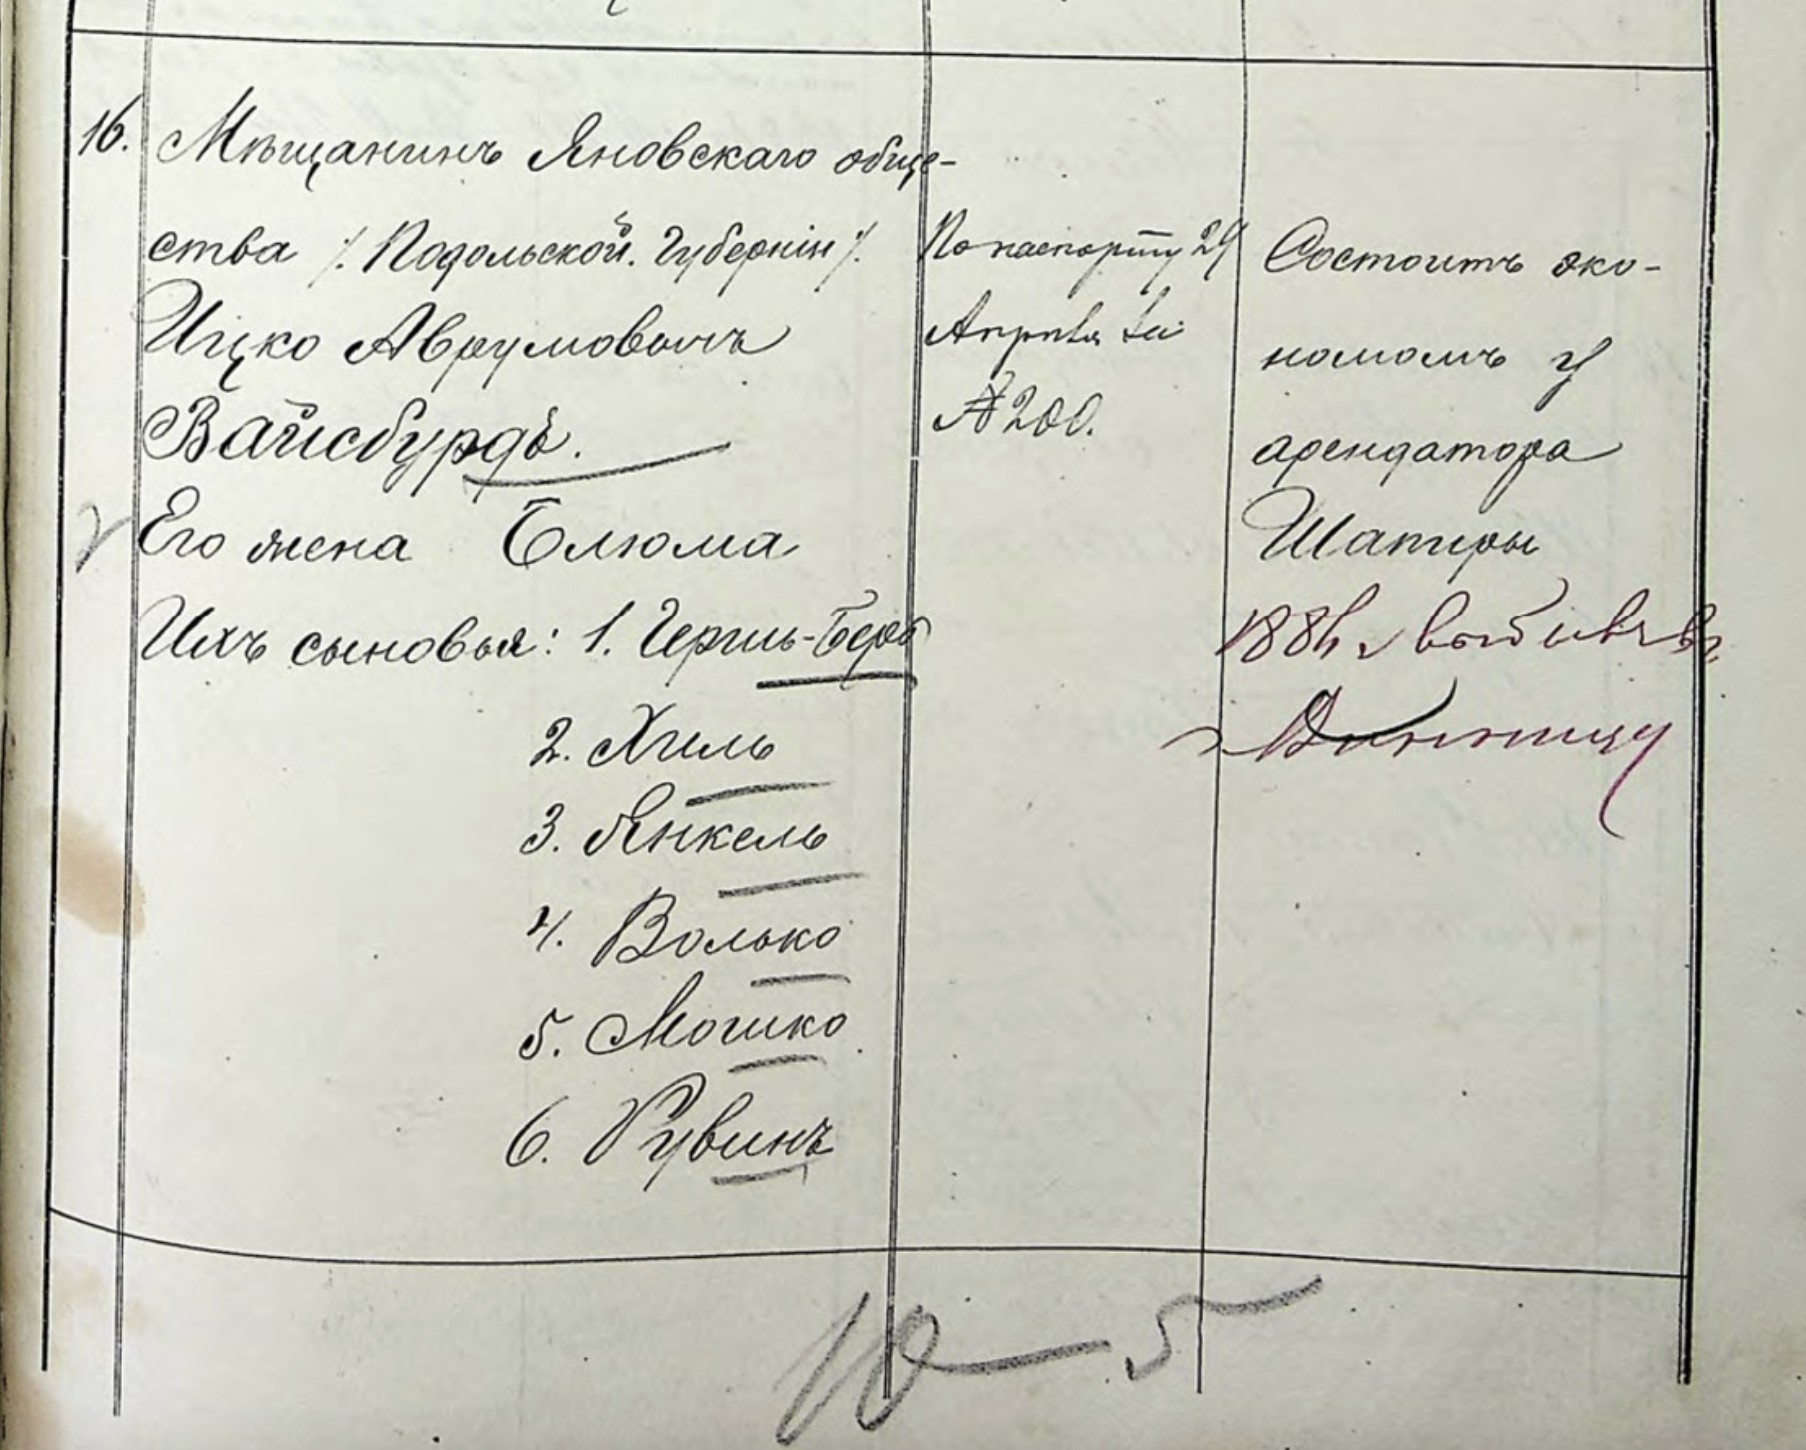 16. Мѣщанинъ Яновскаго обще-
ства /. Подольской. Губерніи /.
Ицко Аврумовичъ
Вайсбурдъ.
Его жена Блюма
Ихъ сыновья: 1. Гершь-Беръ
2. Хиль
3. Янкель
4. Волько
5. Мошко
6. Рувинъ
По паспорту 29
Апрѣля
№ 200.
Состоитъ эко-
номомъ у
арендатора
Шапиры
выбылъ въ
г. Винницу
10 — 5